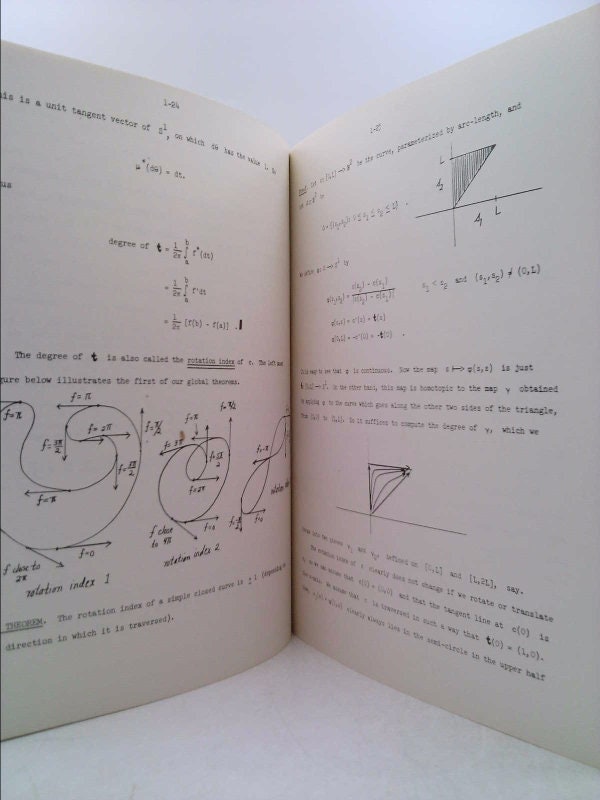 1-24
his is a unit tangent vector of S¹, on which dθ has the value 1. So
μ*(dθ) = dt.
us
degree of t = 1/2π ∫ₐᵇ f*(dt)
= 1/2π ∫ₐᵇ f'dt
= 1/2π [f(b) - f(a)] .
The degree of t is also called the rotation index of c. The left most
gure below illustrates the first of our global theorems.
f=π
f=π
f=2π
f=π/2
f=3π/2
f=3π/2
f=π
f=0
f close to 2π
rotation index 1
f=π
f=π/2
f=3π
f=5π/2
f=2π
f=0
f close to 4π
rotation index 2
f=-π
f=π/2
f=0
rotation index
THEOREM. The rotation index of a simple closed curve is ± 1 (depending
direction in which it is traversed).
1-25
Proof. Let c: [0,L] → ℝ² be the curve, parameterized by arc-length, and
let
Δ = {(s₁,s₂): 0 ≤ s₁ ≤ s₂ ≤ L} .
L
s₂
s₁
L
We define φ: Δ → S¹ by
φ(s₁,s₂) = c(s₂) - c(s₁) / |c(s₂) - c(s₁)| s₁ < s₂ and (s₁,s₂) ≠ (0,L)
φ(s,s) = c'(s) = t(s)
φ(0,L) = -c'(0) = -t(0) .
It is easy to see that φ is continuous. Now the map s ↦ φ(s,s) is just
t: [0,L] → S¹. On the other hand, this map is homotopic to the map γ obtained
by applying φ to the curve which goes along the other two sides of the triangle,
from (0,0) to (L,L). So it suffices to compute the degree of γ, which we
into two pieces γ₁ and γ₂, defined on [0,L] and [L,2L], say.
The rotation index of c clearly does not change if we rotate or translate
so we can assume that c(0) = (0,0) and that the tangent line at c(0) is
the x-axis. We assume that c is traversed in such a way that t(0) = (1,0).
clearly always lies in the semi-circle in the upper half